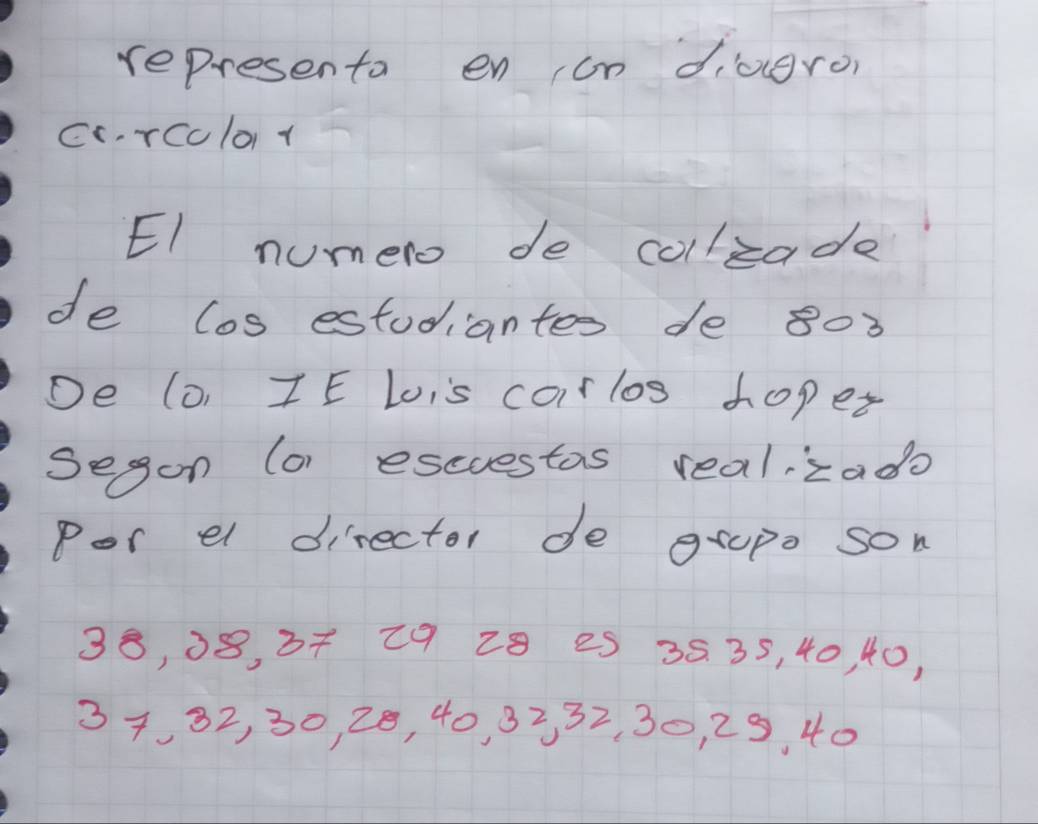 representa en un diagra
circular
El numero de calzado
de los estudiantes de 803
De la IE Luis carlos Lopez
segun la escuestas realizado
Por el director de grupo son
38, 38, 37 29 28 29 35 35, 40, 40,
37, 32, 30, 28, 40, 32, 32, 30, 29, 40